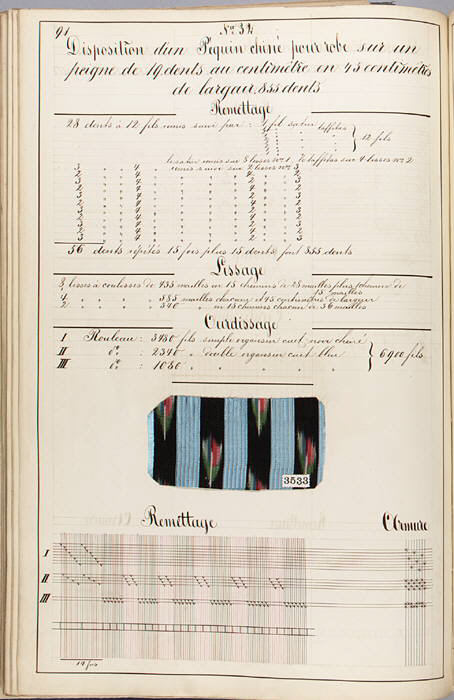 91
No. 32
Disposition d'un Pequin chiné pour robe sur un
peigne de 19 dents au centimètre en 45 centimètres
de largeur, 855 dents
Remettage
28 dents à 12 fils mus suivi par: 1 fil satin taffetas } 12 fils
le satin mus sur 8 lisses No. 1, le taffetas sur 4 lisses No. 2
sur 2 lisses No. 3
56 dents répétés 15 fois plus 15 dents font 855 dents
Lissage
8 lisses à coulisses de 435 mailles en 15 chemins de 28 mailles plus 1 chemin de
15 mailles
4 " " " 585 mailles chacun et 45 centimètres de largeur
2 " " " 540 " en 15 chemins chacun de 36 mailles
Ourdissage
I Rouleau: 3480 fils simple organsin cuit, noir chiné
II do: 2340 " double organsin cuit bleu } 6900 fils
III do: 1080 " " " "
3533
Remettage
L'Armure
I
II
III
14 fois